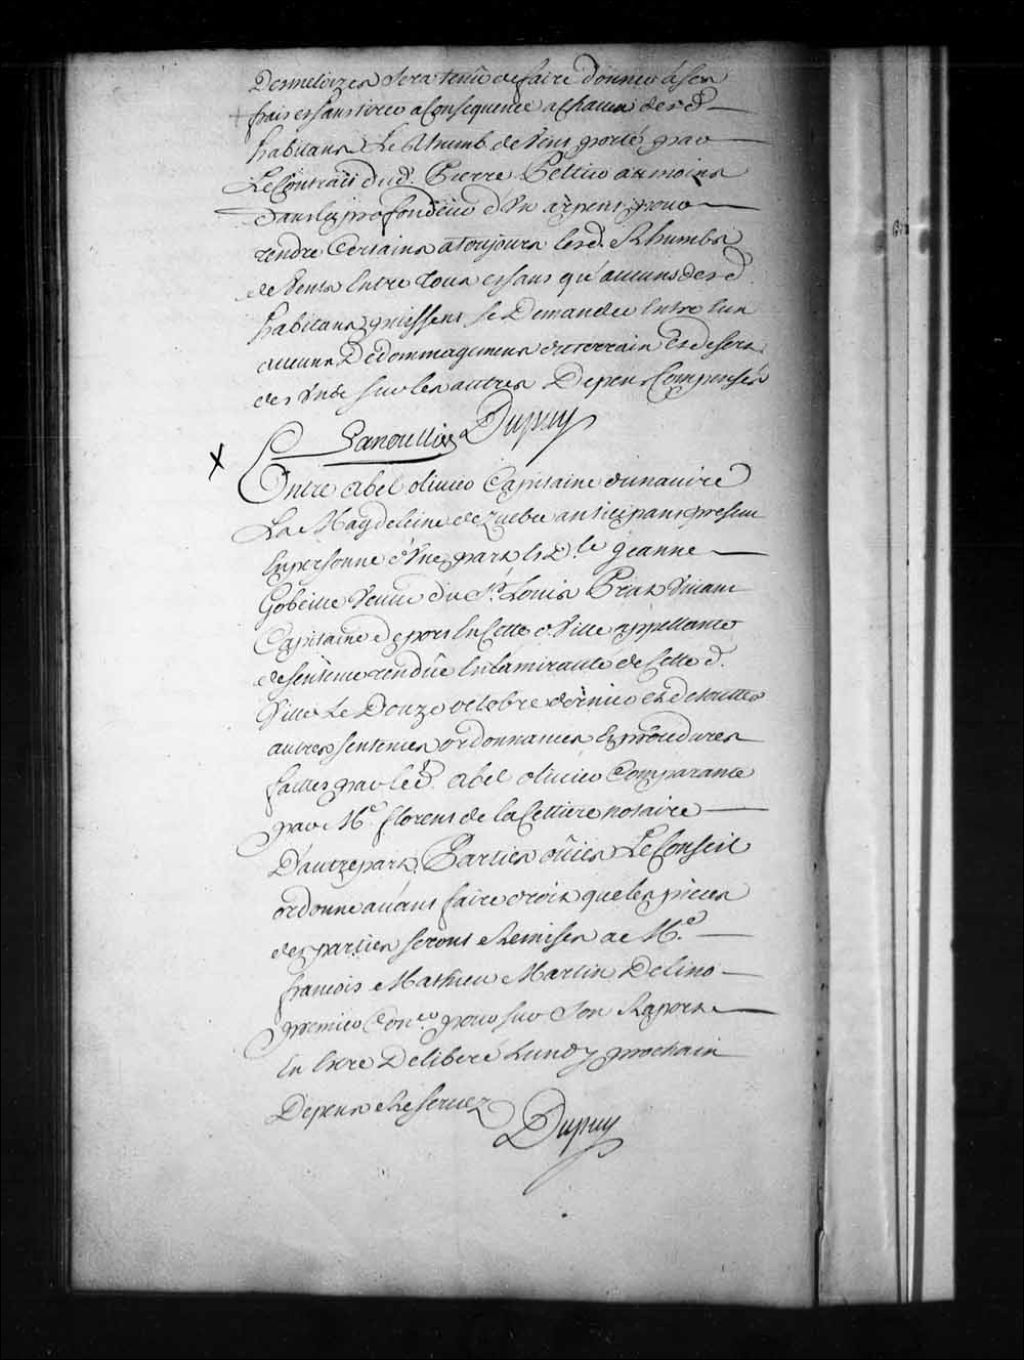 Desmeloizes sera tenû de faire donner à ses
frais et sans tirer a Consequence a chacun desd.
habitans Le Rhumb de Vent porté par
Le Contrait dud. Pierre Peltier au moins
dans la profondeur d'Un arpent pour
rendre Certains a toujours lesd. Rhumbs
de Vents Entre Tous et sans qu'aucuns desd.
habitans puissent se Demander Entre Eux
aucuns Dedommagemens de terrain Et deserts
des Uns sur les autres Depens Compensés
Lanoullier Dupuy
X
Entre Abel olivier Capitaine du navire
La Magdeleine de Quebec anticipant present
En personne d'Une part Et D.lle Jeanne
Gobeille Veuve du S.r Louis Prat Vivant
Capitaine de port En Cette d. Ville appellante
de sentence rendûe En Lamirauté de Cette d.
Ville Le Douze octobre dernier et de touttes
autres sentences ordonnances Et procedures
faittes par led. Abel olivier Comparante
par M.e florent de la Cettiere notaire
D'autre part. Parties oüies Le Conseil
ordonne avant faire droit que les pieces
des parties seront Remises a M.e
françois Mathieu Martin Delino
premier Con.er pour sur Son Raport
En Etre Deliberé Lundy prochain
Depens Reservez
Dupuy